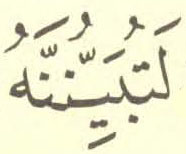 لَتُبَيِّنُنَّهُ